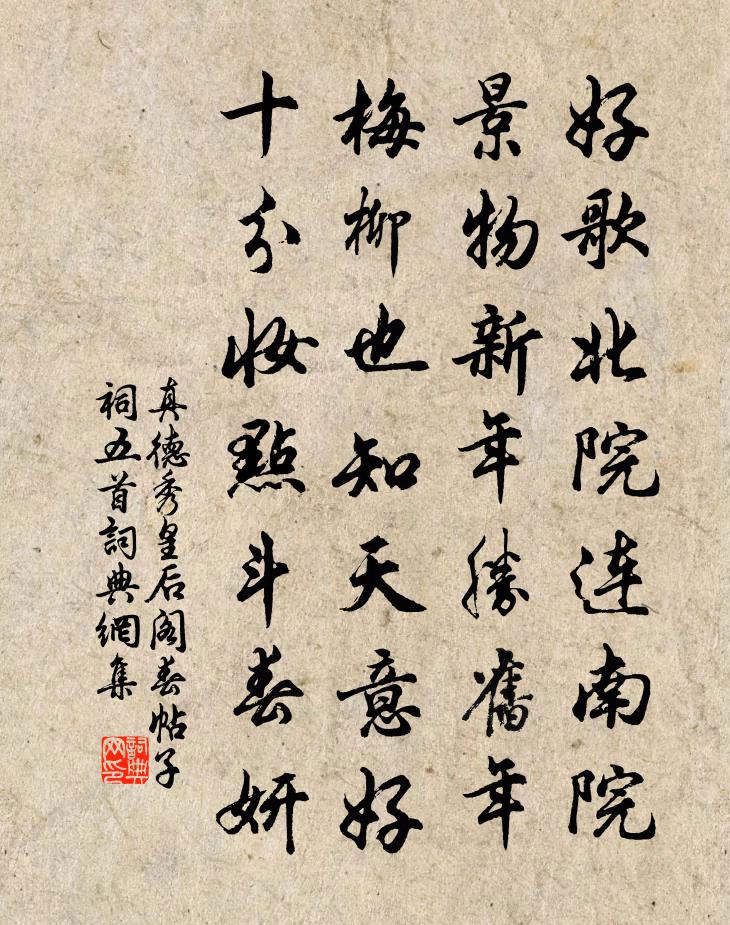 好歌北院连南院
景物新年勝舊年
梅柳也知天意好
十分妝點斗春妍
真德秀皇后阁春帖子
祠五首詞典網集
詞典网印